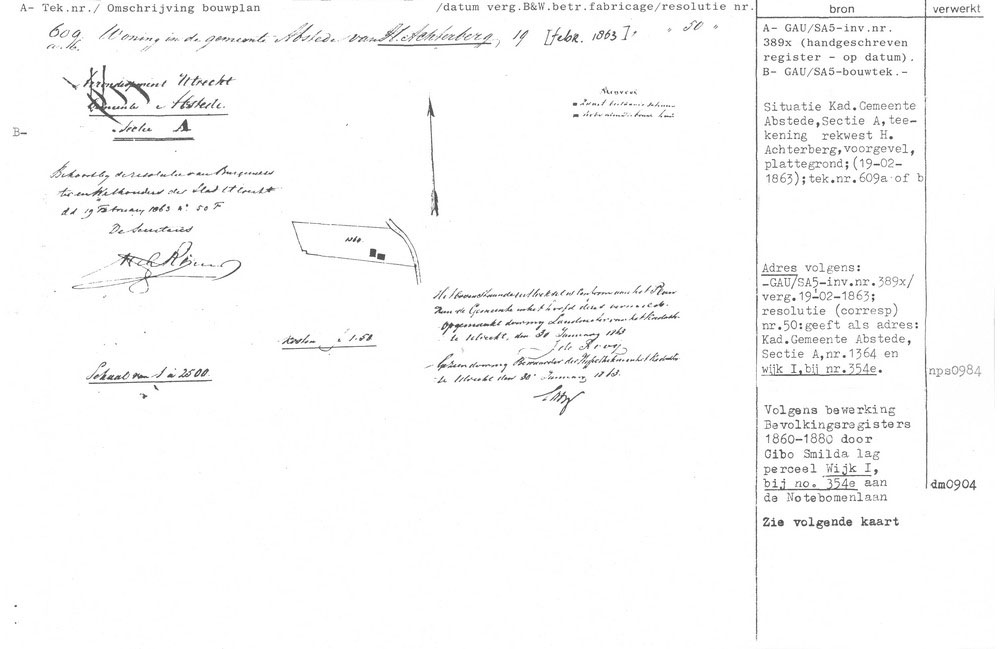 A- Tek.nr./ Omschrijving bouwplan /datum verg.B&W.betr.fabricage/resolutie nr. bron verwerkt
609 Woning in de gemeente Abstede van H. Achterberg, 19 [febr. 1863], " 50 "
a.b.
Utrecht
Gemeente Abstede.
Sectie A
B-
Behoort bij de resolutie van Burgemees
ter en Wethouders der Stad Utrecht
dd 19 February 1863 n° 50 F
De Secretaris
1360
Kosten f 1.50
Schaal van 1 à 2500.
Het bovenstaande uittreksel is Conform aan het Plan
Opgemaakt door mij Landmeter van het Kadaster
te Utrecht, den 30 January 1863
Gezien door mij Bewaarder der Hypotheken en het Kadaster
te Utrecht den 30 January 1863.
A- GAU/SA5-inv.nr.
389x (handgeschreven
register - op datum).
B- GAU/SA5-bouwtek.-
Situatie Kad.Gemeente
Abstede,Sectie A,tee-
kening rekwest H.
Achterberg,voorgevel,
plattegrond;(19-02-
1863);tek.nr.609a of b
Adres volgens:
-GAU/SA5-inv.nr.389x/
verg.19-02-1863;
resolutie (corresp)
nr.50:geeft als adres:
Kad.Gemeente Abstede,
Sectie A,nr.1364 en
wijk I,bij nr.354e. nps0984
Volgens bewerking
Bevolkingsregisters
1860-1880 door
Gibo Smilda lag
perceel Wijk I,
bij no. 354e aan dm0904
de Notebomenlaan
Zie volgende kaart